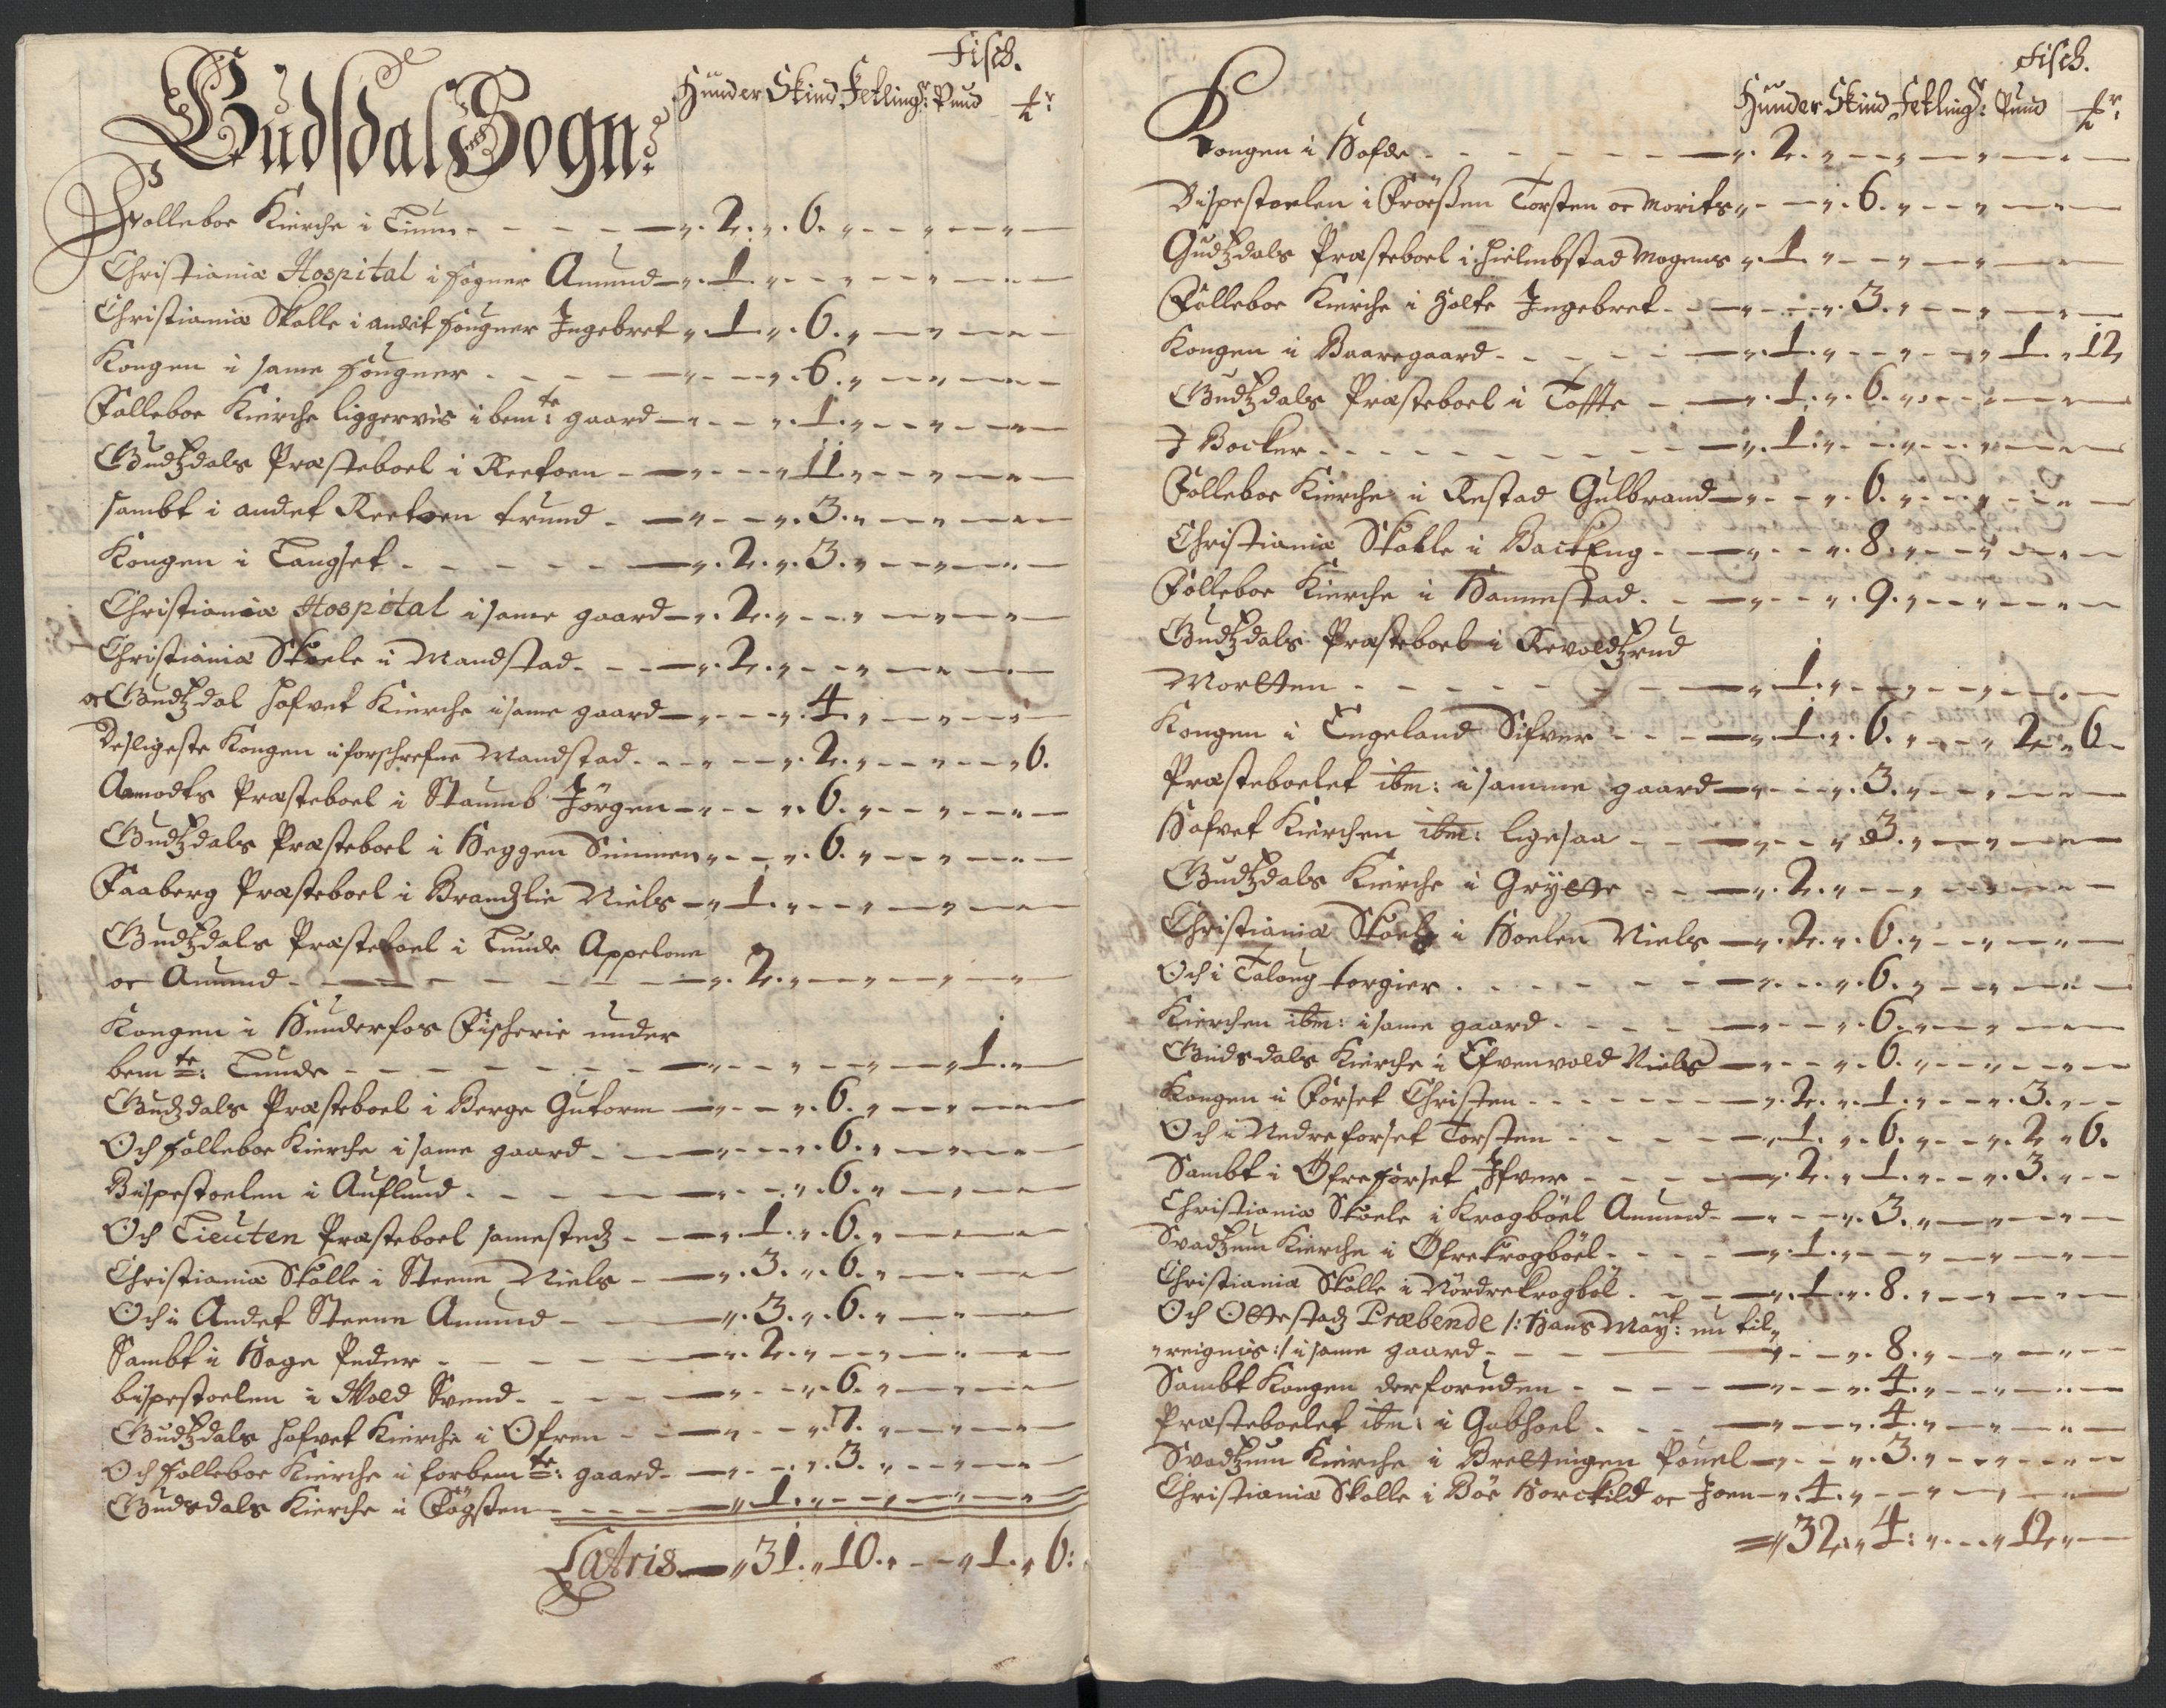 Gudsdal Sogn:
Fisch.
Hunder Skind Fetling: Pund
Folleboe Kierche i Tiunn - 2. 6.
Christiania Hospital i Hogner Amund - 1.
Christiania Skolle i andet Hougner Ingebret 1. 6.
Kongen i same Hougner - 6.
Folleboe Kierche liggervis i bem:te gaard - 1.
Gudtzdals Præsteboel i Reetoen - 11.
sambt i andet Reetoen trund - 3.
Kongen i Tangset - 2. 3.
Christiania Hospital i same gaard - 2.
Christiania Skoele i Mandstad - 2.
oc Gudtzdal Hofvet Kierche i same gaard - 4.
Desligeste Kongen i forschrefne Mandstad - 2. 6.
Aamodts Præsteboel i Staumb Jörgen - 6.
Gudtzdals Præsteboel i Heggen Simmen 6.
Faaberg Præsteboel i Brandlie Niels - 1.
Gudtzdals Præsteboel i Tunde Appelone
oc Amund - 2.
Kongen i Hunderfos Fischerie under
bem:te Tunde - 1.
Gudzdals Præsteboel i Berge Gutorm - 6.
Och Folleboe Kierche i same gaard - 6.
Bispestoelen i Auflund - 6.
Och Tieuten Præsteboel samestedz - 1. 6.
Christiania Skolle i Steene Niels - 3. 6.
Och i Andet Steene Amund - 3. 6.
Sambt i Hage Peder - 2.
bispestoelen i Wold Svend - 6.
Gudtzdals Hofvet Kierche i Ofren - 7.
Och Folleboe Kierche i forbem:te gaard - 3.
Gudsdals Kierche i Fogsten - 1.
Latris - 31. 10. - 1. 6:
Fisch.
Hunder Skind Fetling: Pund
Kongen i Hofde - 2.
Bispestoelen i Frösßen Torsten oc Morits - 6.
Gudtzdals Præsteboel i Hielmbstad Mogens 1.
Folleboe Kierche i Holte Ingebret - 3.
Kongen i Baaregaard - 1. - 1. 12
Gudtzdals Præsteboel i Toffte - 1. 6.
I Bocker - 1.
Folleboe Kierche i Restad Gulbrand - 6.
Christiania Skolle i BackEng - 8.
Folleboe Kierche i Hannestad - 9.
Gudtzdals Præsteboel i Revoldtzrud
Mortten - 1.
Kongen i Engeland Sifver - 1. 6. - 2. 6.
Præsteboelet ibm: i samme gaard - 3.
Hofvet Kierchen ibm: ligesaa - 3.
Gudtzdals Kierche i Grytte - 2.
Christiania Skoele i Hoelen Niels - 2. 6.
Och i Taloug torgier - 6.
Kierchen ibm: i same gaard - 6.
Gudsdals Kierche i Efvenvold Niels - 6.
Kongen i Forset Christen - 2. 1. - 3.
Och i Nedreforset Torsten - 1. 6. - 2. 6.
Sambt i Öfreforset Ifver - 2. 1. - 3.
Christiania Skoele i Krogböel Amund - 3.
Svadtzum Kierche i Öfrekrogböel - 1.
Christiania Skolle i Nordrekrogböl - 1. 8.
Och Ottestadz Præbende /: Hans May:et nu til
reignis :/ i same gaard - 8.
Sambt Kongen derforuden - 4.
Præsteboelet ibm: i Gobhoel - 4.
Svadtzum Kierche i Brettingen Pouel - 3.
Christiania Skolle i Böe Horckild oc Joen - 4.
32. 4: - 12.